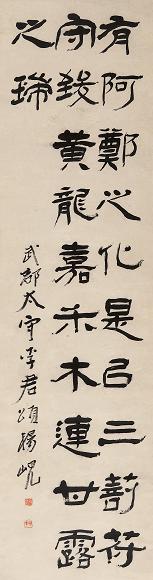 有阿鄭之化是㠯三剖苻
守致黃龍嘉禾木連甘露
之瑞
武都太守李君頌楊峴